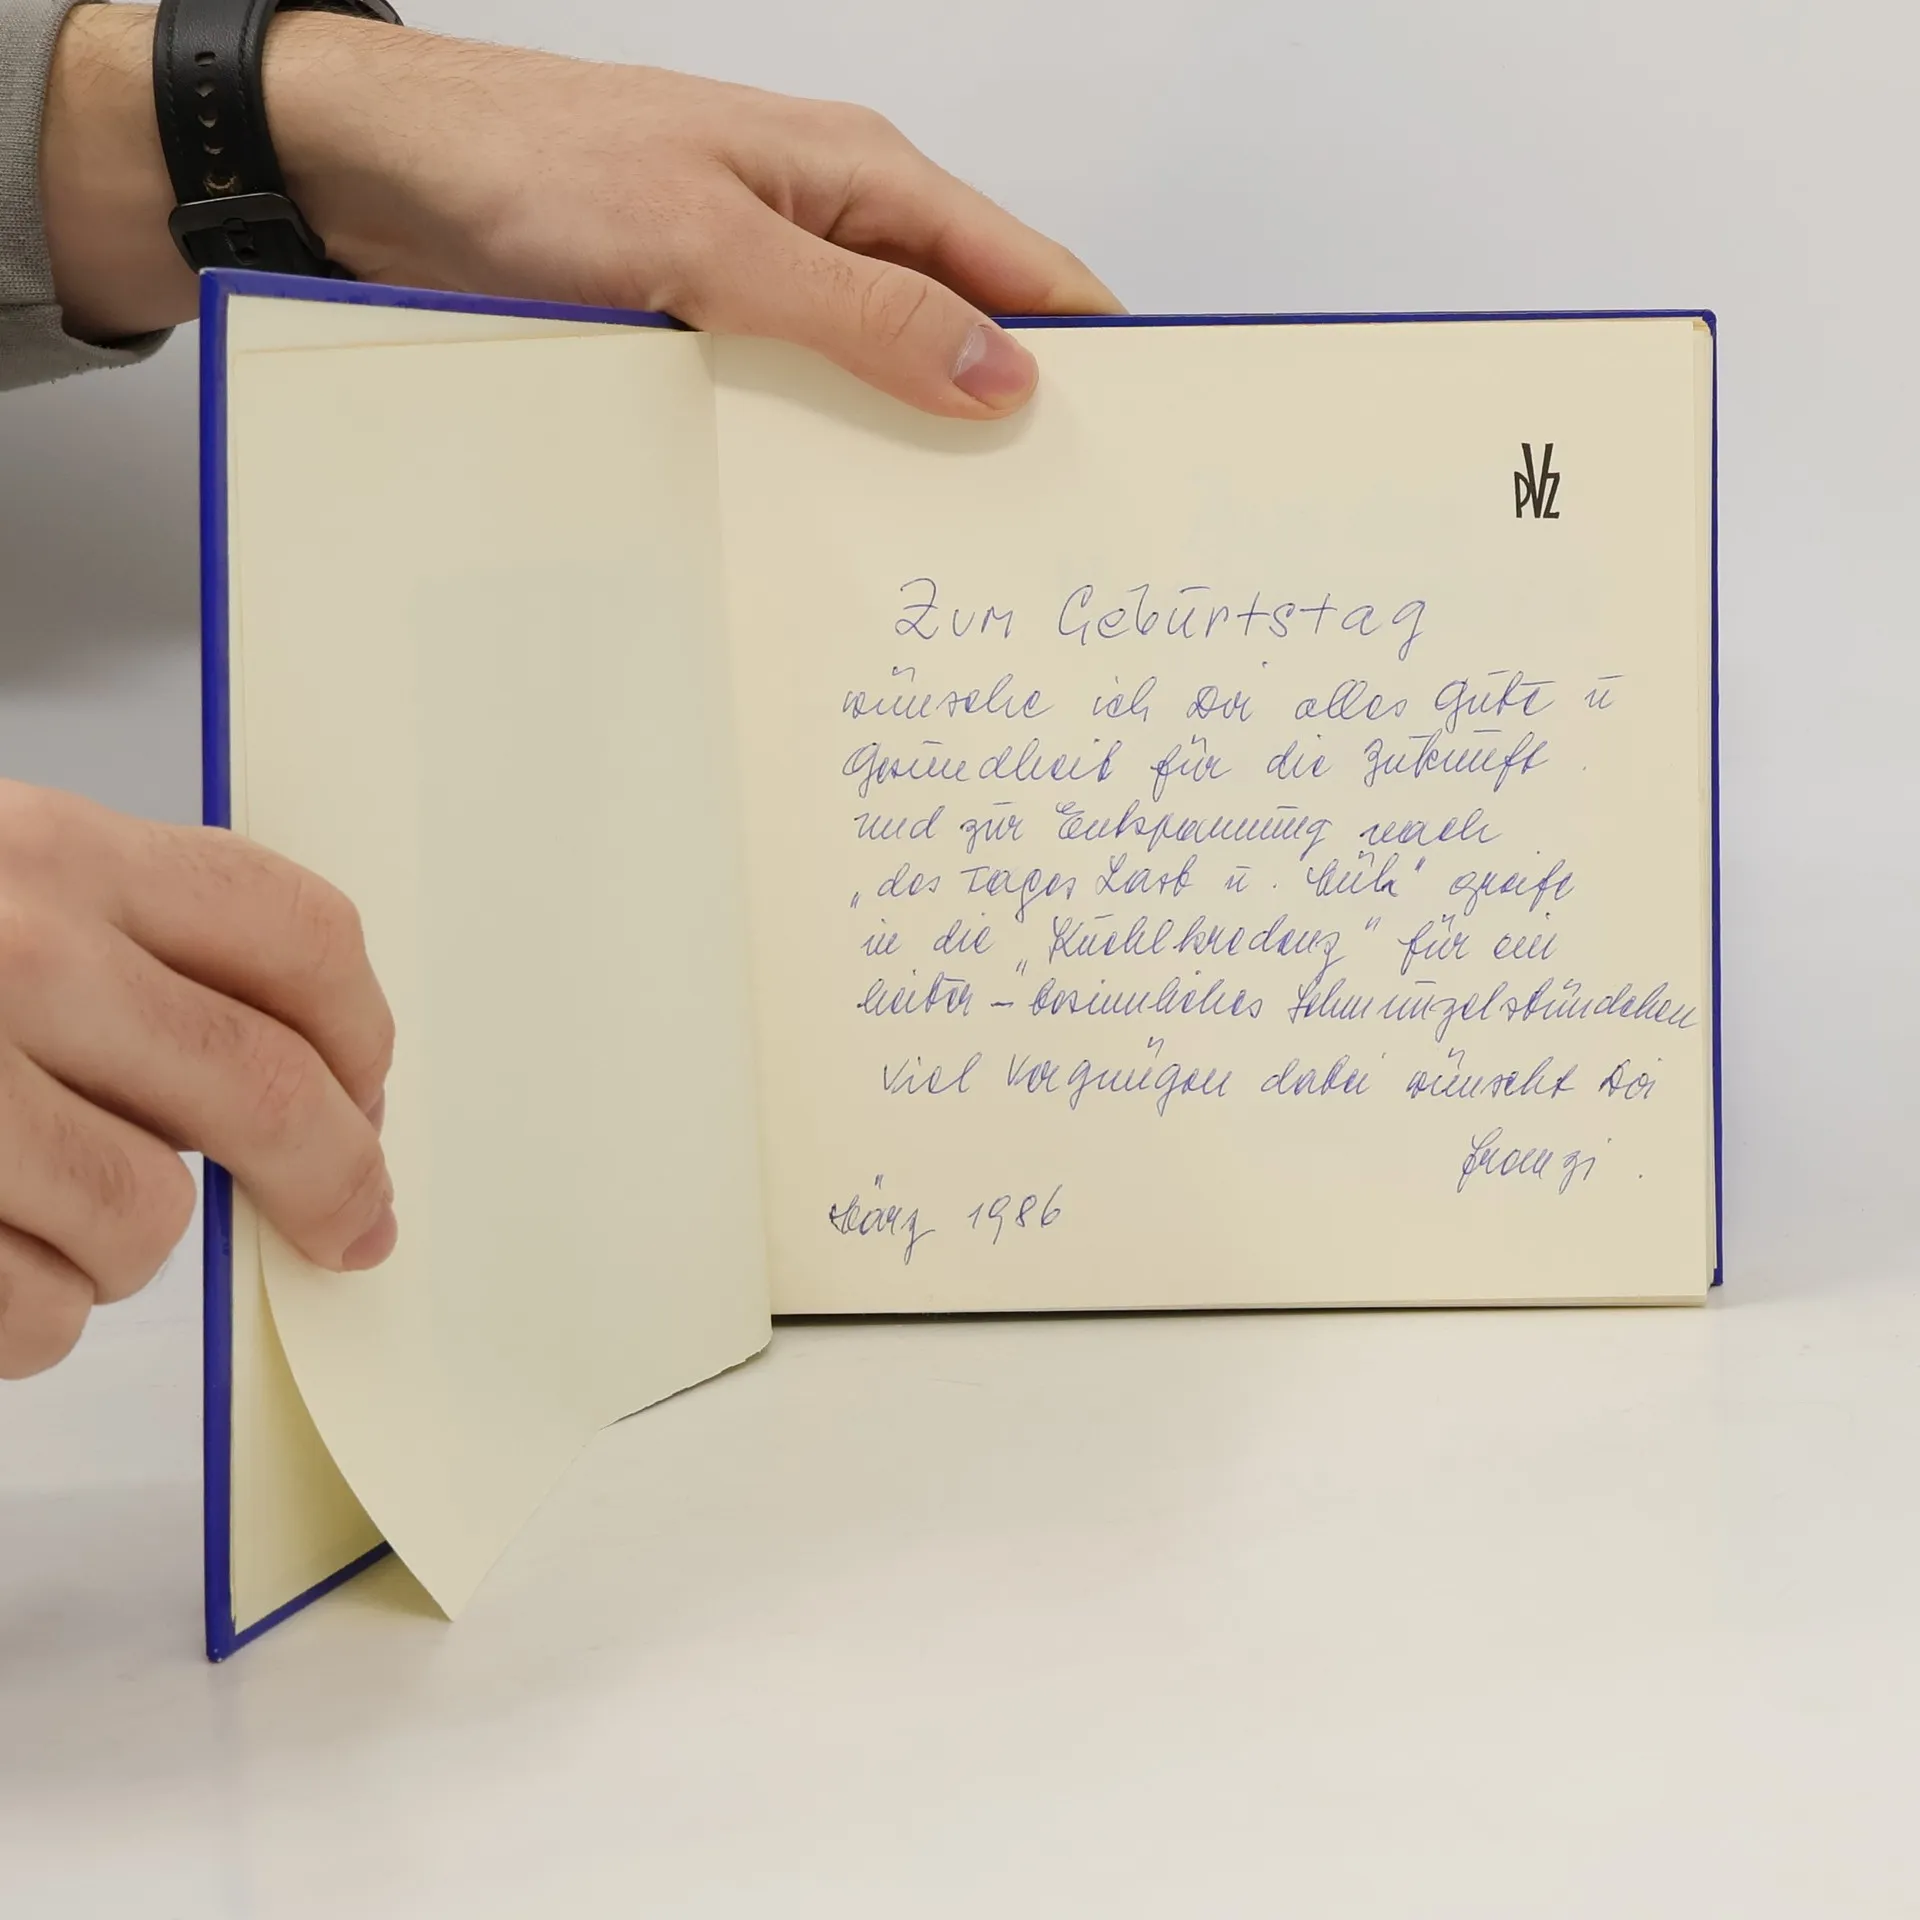 PVZ
Zum Geburtstag
wünsche ich Dir alles Gute u
Gesundheit für die Zukunft.
und zur Entspannung nach
„des Tages Last u. Müh" greife
in die „Kuchlkredenz" für ein
heiter - besinnliches Schmunzelstündchen
Viel Vergnügen dabei wünscht Dir
Franzi.
März 1986